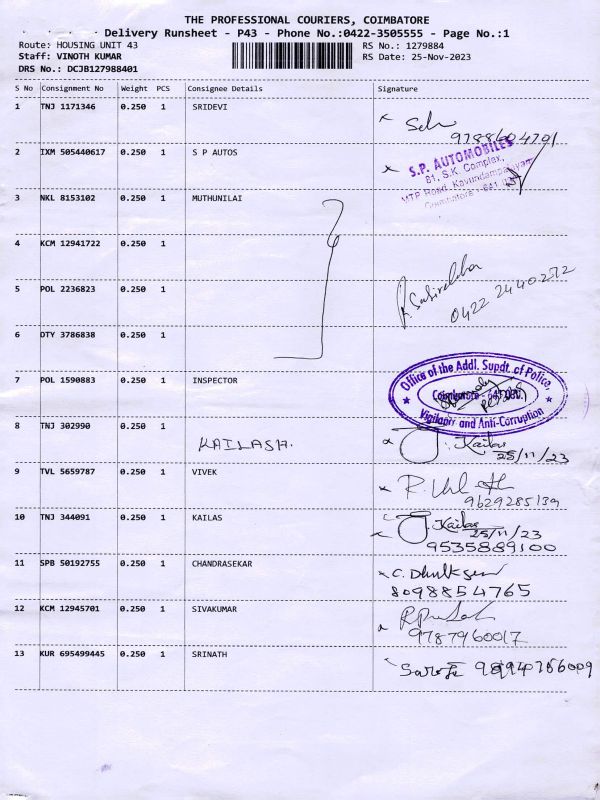 THE PROFESSIONAL COURIERS, COIMBATORE
Delivery Runsheet - P43 - Phone No.:0422-3505555 - Page No.:1
Route: HOUSING UNIT 43
RS No.: 1279884
Staff: VINOTH KUMAR
RS Date: 25-Nov-2023
DRS No.: DCJB127988401
S No Consignment No Weight PCS Consignee Details Signature
1 TNJ 1171346 0.250 1 SRIDEVI
9788604791
2 IXM 505440617 0.250 1 S P AUTOS
S.P. AUTOMOBILES
81, S.K. Complex,
MTP Road, Kavundampalayam
Coimbatore - 641
3 NKL 8153102 0.250 1 MUTHUNILAI
4 KCM 12941722 0.250 1
5 POL 2236823 0.250 1
0422 2440272
6 DTY 3786838 0.250 1
7 POL 1590883 0.250 1 INSPECTOR
Office of the Addl. Supdt. of Police,
Coimbatore - 641 030.
Vigilance and Anti-Corruption
8 TNJ 302990 0.250 1
KAILASH.
J. Kailas
25/11/23
9 TVL 5659787 0.250 1 VIVEK
9629285139
10 TNJ 344091 0.250 1 KAILAS
J. Kailas
25/11/23
9535889100
11 SPB 50192755 0.250 1 CHANDRASEKAR
8098854765
12 KCM 12945701 0.250 1 SIVAKUMAR
9787960017
13 KUR 695499445 0.250 1 SRINATH